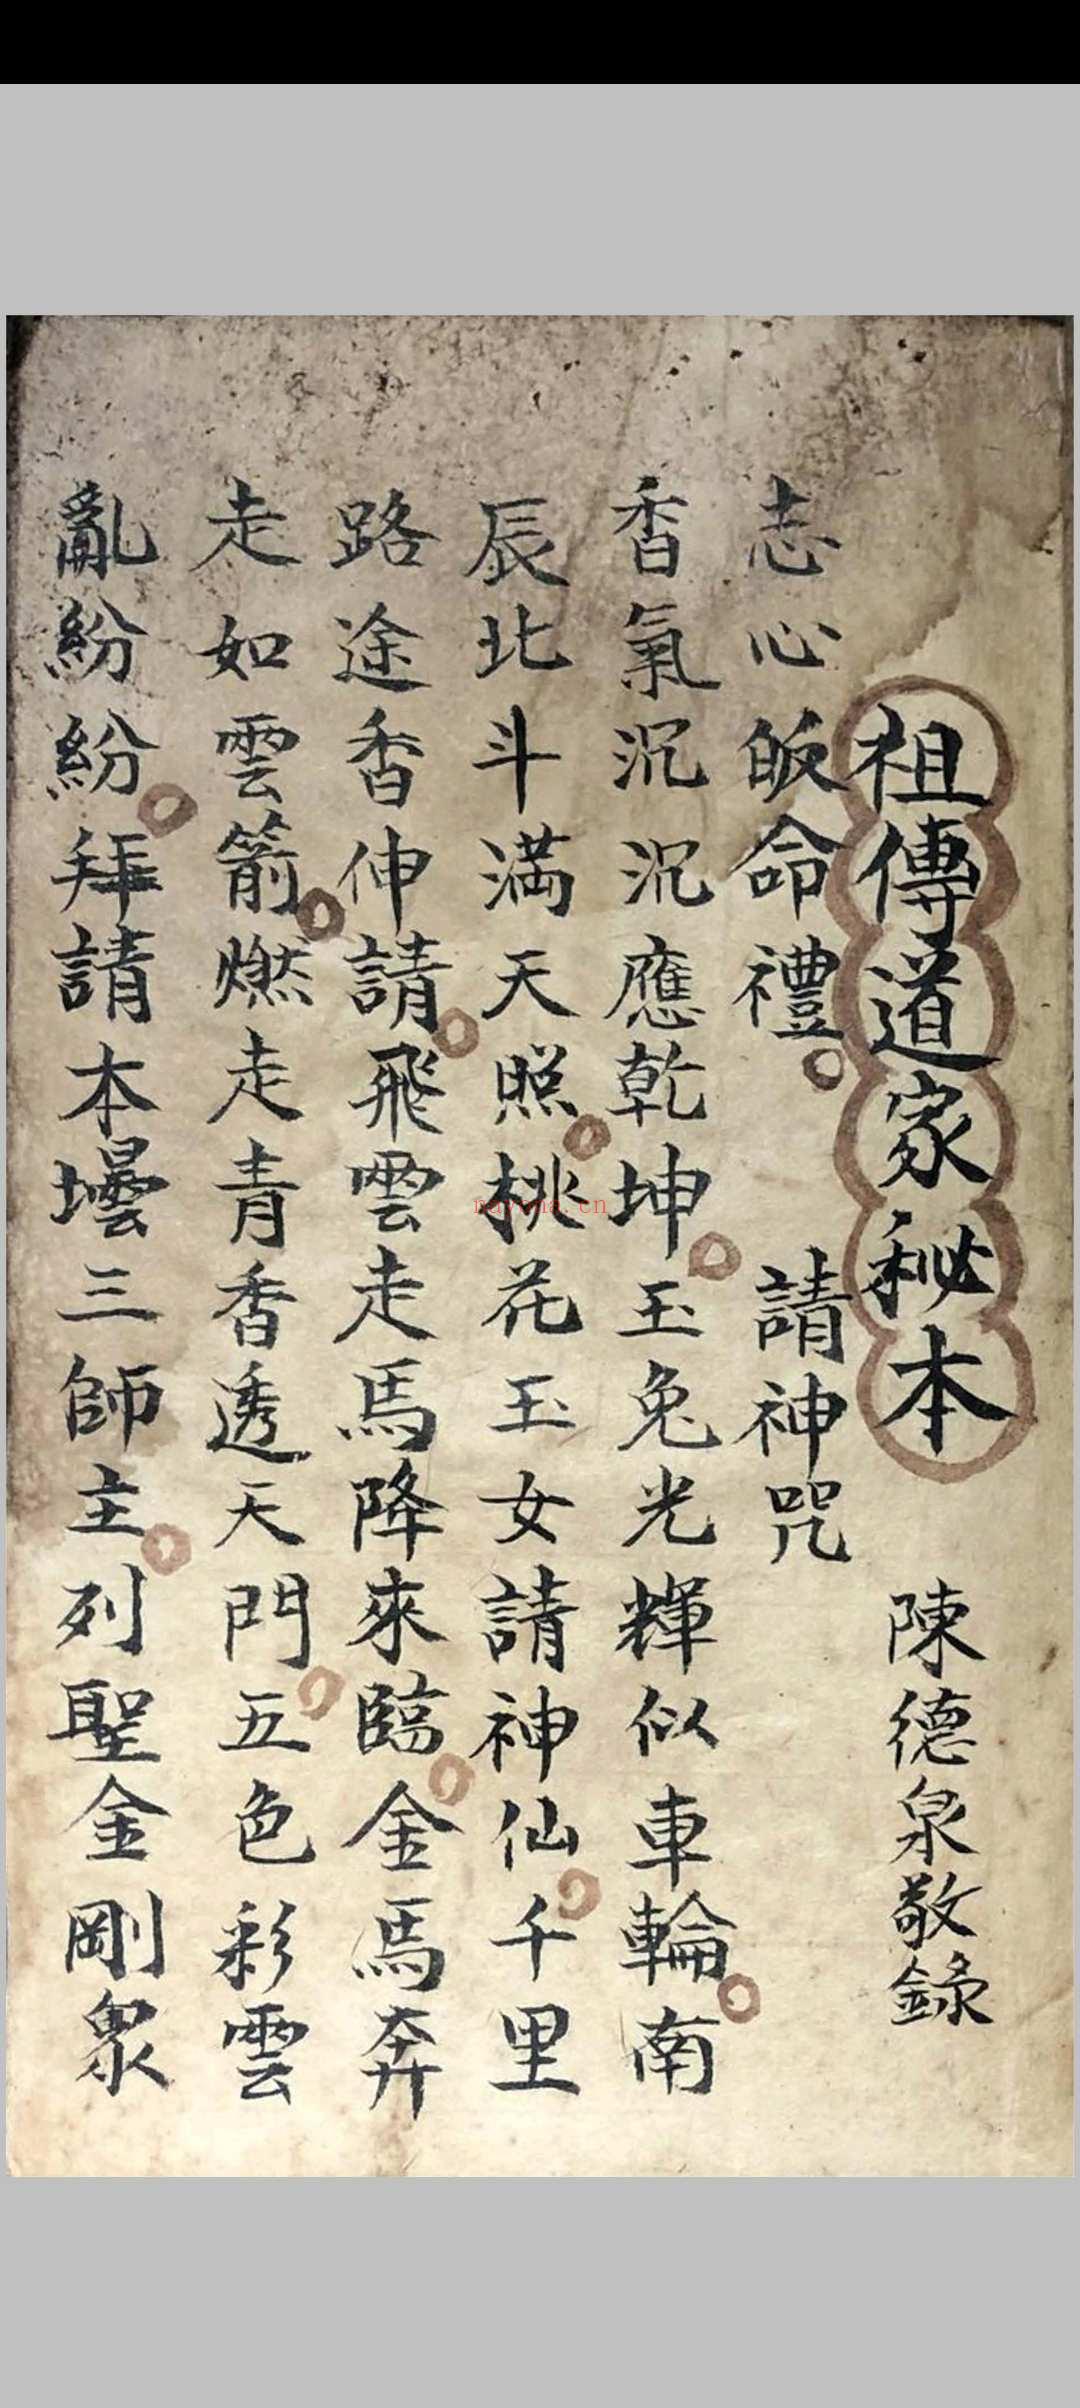 祖傳道家秘本 陳德泉敬錄
志心皈命禮 請神咒
香氣沉沉應乾坤玉兔光輝似車輪南
辰北斗滿天照桃花玉女請神仙千里
路途香伸請飛雲走馬降來臨金馬奔
走如雲箭燃走青香透天門五色彩雲
亂紛紛拜請本壇三師主列聖金剛眾
nayona.cn